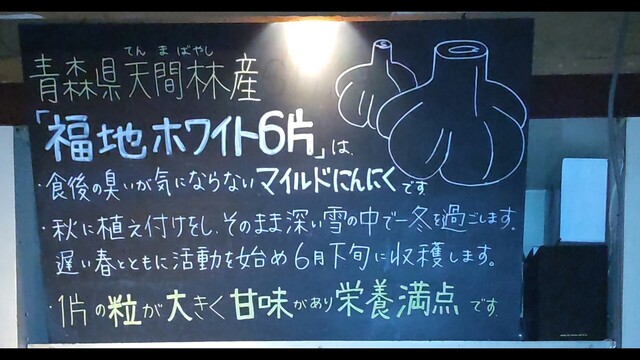 てんまばやし
青森県天間林産
「福地ホワイト6片」は、
・食後の臭いが気にならないマイルドにんにくです
・秋に植え付けをし、そのまま深い雪の中で一冬を過ごします。
遅い春とともに活動を始め6月下旬に収穫します。
・1片の粒が大きく甘味があり栄養満点です。